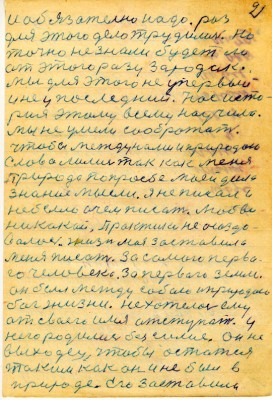 91
и обязателно надо. раз
для этого дело трудимся. Но
точно не знали будет ли
от этого разу зародик.
мы для этого не у первый
и не у последний. Нас исто-
рия этому всему научила.
мы не умели сообротат.
чтобы между нами и природою
слова лились так как меня
Природа попросьбе моей дала
знание мысли. Я не писал и
небыло о чем писат. Любви
никакой, практики не оказо-
валос. жизня моя заставила
меня писат. За самого перво-
го человека, За первого земли.
он был между собою и природою
бог жизни. Не хотелос ему
от своего имя отступат. у
него родилис без силие. Он не
выходец, чтобы остатся
таким как он и не был в
природе. Его заставила